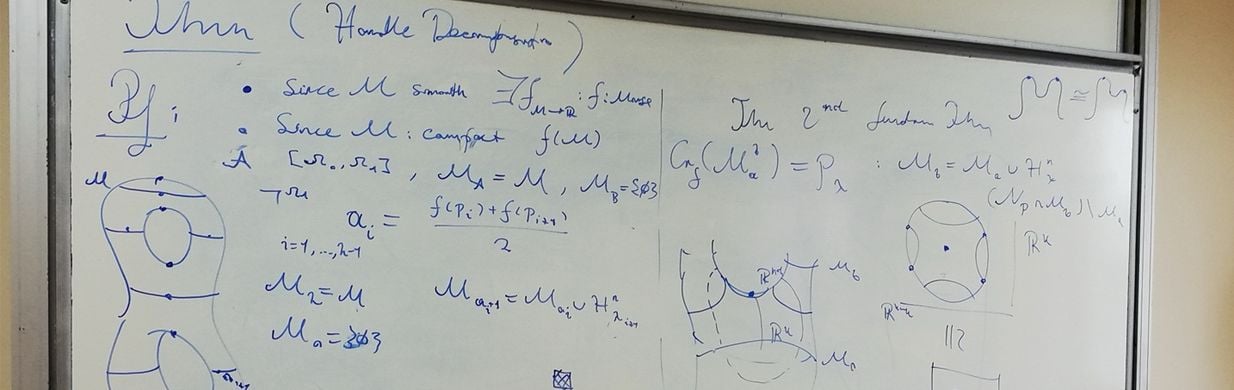 Thm (Handle Decomposition)
Pf:
• Since M smooth ∃f_{M→ℝ} : f: Morse
• Since M: compact f(M)
M_A = M, M_B = {ϕ}
a_i = (f(p_i) + f(p_{i+1})) / 2
i=1,...,λ-1
M_λ = M
M_{a_{i+1}} = M_{a_i} ∪ H^n_{λ_{i+1}}
M_0 = {ϕ}
M
Thm 2nd fundam Thm
Cr_f(M_a^b) = p_λ : M_b = M_a ∪ H^n_λ
(N_p ∩ M_b) \ M_a
M_b
M_a
ℝ^k
ℝ^k